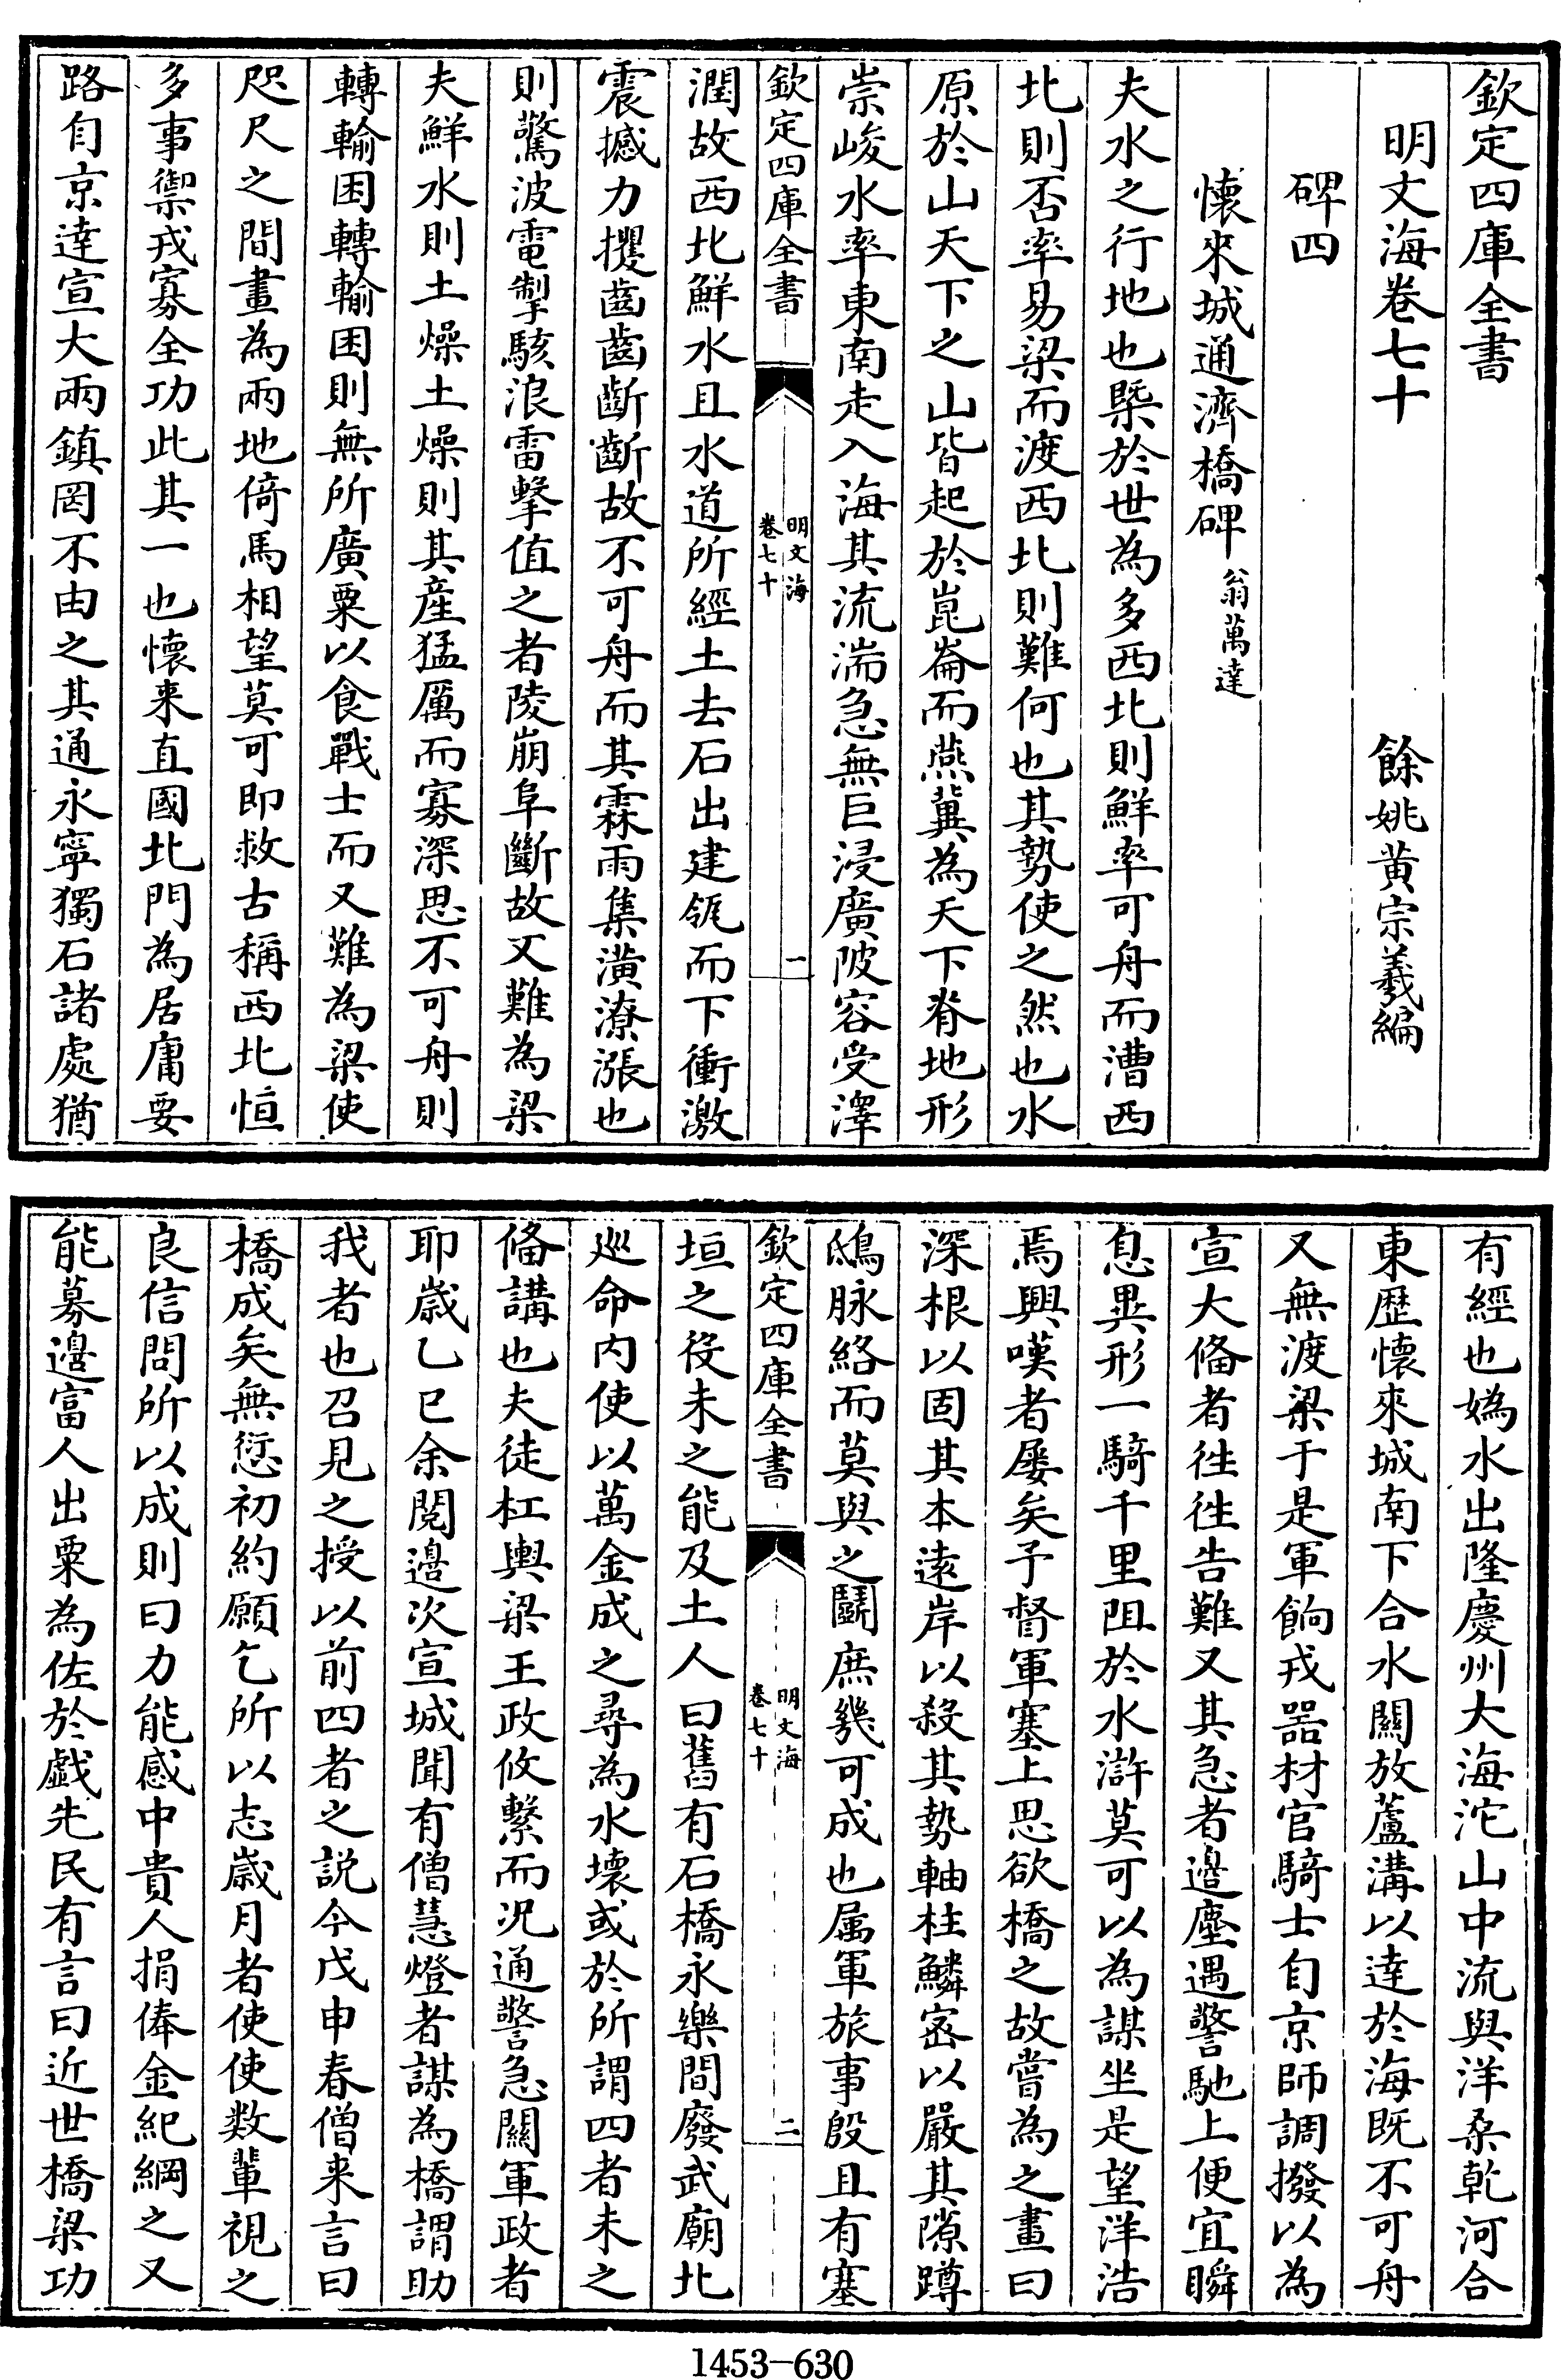 欽定四庫全書
明文海卷七十
餘姚黄宗羲編
碑四
懷來城通濟橋碑翁萬達
夫水之行地也槩於世為多西北則鮮率可舟而漕西
北則否率易梁而渡西北則難何也其勢使之然也水
原於山天下之山皆起於崑崙而燕冀為天下脊地形
崇峻水率東南走入海其流湍急無巨浸廣陂容受澤
欽定四庫全書
明文海
卷七十
一
潤故西北鮮水且水道所經土去石出建瓴而下衝激
震撼力攖齒齒齗齗故不可舟而其霖雨集潢潦漲也
則驚波電掣駭浪雷擊值之者陵崩阜斷故又難為梁
夫鮮水則土燥土燥則其産猛厲而寡深思不可舟則
轉輸困轉輸困則無所廣粟以食戰士而又難為梁使
咫尺之間畫為兩地倚馬相望莫可即救古稱西北恒
多事禦戎寡全功此其一也懷来直國北門為居庸要
路自京達宣大兩鎮罔不由之其通永寧獨石諸處猶
有經也媯水出隆慶州大海沱山中流與洋桑乾河合
東歴懷來城南下合水關放蘆溝以達於海既不可舟
又無渡梁于是軍餉戎器材官騎士自京師調撥以為
宣大備者徃徃告難又其急者邊塵遇警馳上便宜瞬
息異形一騎千里阻於水滸莫可以為謀坐是望洋浩
焉興嘆者屡矣予督軍塞上思欲橋之故嘗為之畫曰
深根以固其本遠岸以殺其勢軸柱鱗宻以嚴其隙蹲
鴟脉絡而莫與之鬪庶㡬可成也属軍旅事殷且有塞
欽定四庫全書
明文海
卷七十
二
垣之役未之能及土人曰舊有石橋永樂間廢武廟北
廵命内使以萬金成之尋為水壊或於所謂四者未之
偹講也夫徒杠輿梁王政攸繫而况通警急關軍政者
耶歳乙巳余閲邊次宣城聞有僧慧燈者謀為橋謂助
我者也召見之授以前四者之説今戊申春僧来言曰
橋成矣無愆初約願乞所以志歳月者使使数輩視之
良信問所以成則曰力能感中貴人捐俸金紀綱之又
能募邊富人出粟為佐於戯先民有言曰近世橋梁功
1453-630